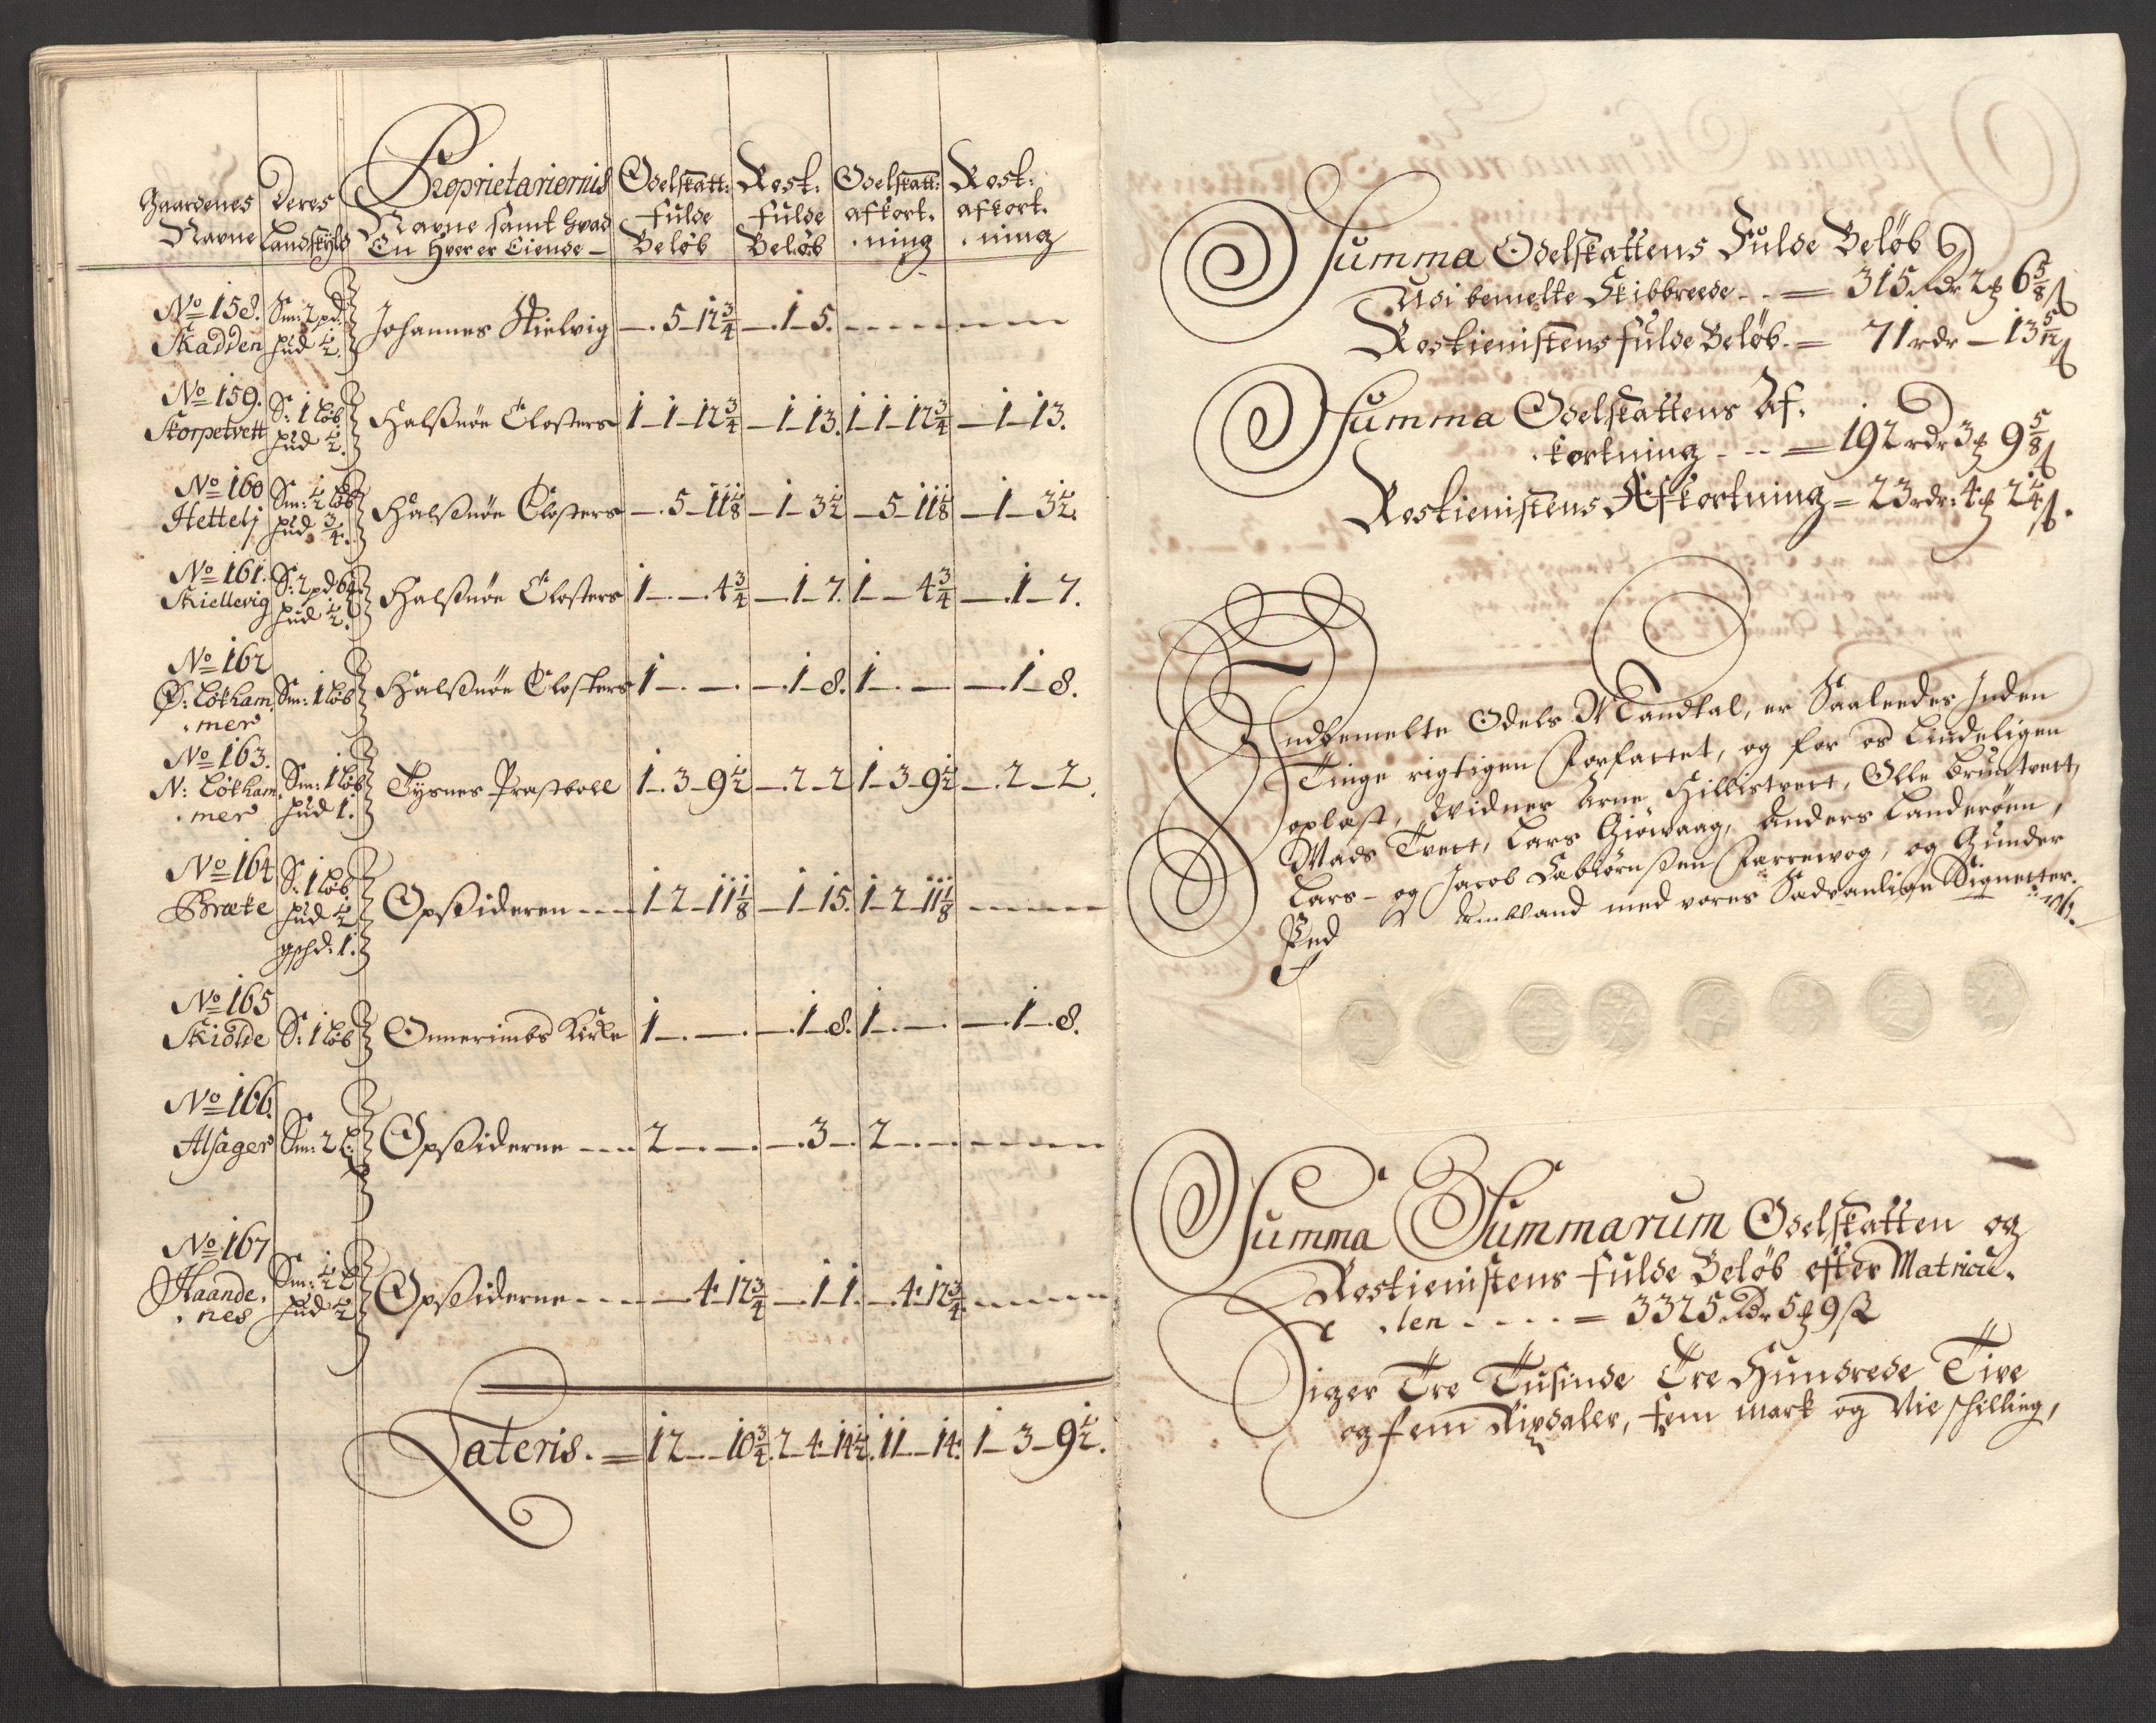 Gaardenes Navne | Deres Landskÿld | Proprietariernis Navne samt hvad En hver er Eiende | Odelskatt: fulde Beløb | Rost: fulde Beløb | Odelskatt: afkort. ning | Rost: afkort. ning
No 158. Skadden | Sm: 2 pd: hud ½. | Johannes Kielvig | — 5 – 12¾ | — 1 – 5. | — | —
No 159. Skorpetvett | S: 1 Løb hud ½. | Halsnøe Closters | 1 – 1 – 12¾ | — 1 – 13. | 1 – 1 – 12¾ | — 1 – 13.
No 160 Hettelj | Sm: ½ løb hud ¾. | Halsnøe Closters | — 5 – 11⅛ | — 1 – 3½ | — 5 – 11⅛ | — 1 – 3½.
No 161. Skiellevig | S: 2 pd 6 hud ½. | Halsnøe Closters | 1 — 4¾ | — 1 – 7. | 1 — 4¾ | — 1 – 7.
No 162 Ø: Løkham. mer | Sm: 1 Løb | Halsnøe Closters | 1 — — | — 1 – 8. | 1 — — | — 1 – 8.
No 163. N: Løkham. mer | Sm: 1 Løb hud 1. | Tysnes Præstboll | 1 – 3 – 9½ | — 2 – 2 | 1 – 3 – 9½ | — 2 – 2.
No 164 Bræke | S: 1 Løb hud ½ | Opsideren | 1 – 2 – 11⅛ | — 1 – 15. | 1 – 2 – 11⅛ | —
No 165 Skiolde | S: 1 Løb | Onnerimbs Kirke | 1 — — | — 1 – 8. | 1 — — | — 1 – 8.
No 166. Alsager | Sm: 2 L: | Opsiderne | 2 — — | — 3 — | 2 — — | —
No 167 Haande. nes | Sm: ½ L hud ½ | Opsiderne | — 4 – 12¾ | — 1 – 1. | — 4 – 12¾ | —
Lateris. = | 12 — 10¾. | 2 – 4 – 14½. | 11 — 14. | 1 – 3 – 9½.
Summa Odelskattens Fulde Beløb
Udi bemelte Skibbreede - - = 315 Rdr 2 ₰ 6⅝ s
Rostienistens fulde Beløb. = 71 rdr – 13 5/12 s
Summa Odelskattens Af.
kortning - - - = 192 rdr 3 ₰ 9⅝ s
Rostienistens Afkortning = 23 rdr: 4 ₰ 2¼ s.
Indbemelte Odels Mandtal, er Saaleedes Inden
Tinge rigtigen Forfattet, og for os Lindeligen
oplæst, Vidner Arne Hillistvett, Olle Bruntvett,
Mads Tvett, Lars Giøwaag, Anders Landerøen,
Lars – og Jacob Fæbiørnsen Færrevog, og Gunder
Ambland med vores Sædvanlige Signetter.
Summa Summarum Odelskatten og
Rostienistens fulde Beløb efter Matricu.
len - - - - = 3325 Rdr 5 ₰ 9 s
Siger Tre Tusinde Tre Hundrede Tive
og fem Rixdaler, fem mark og Nie schilling,